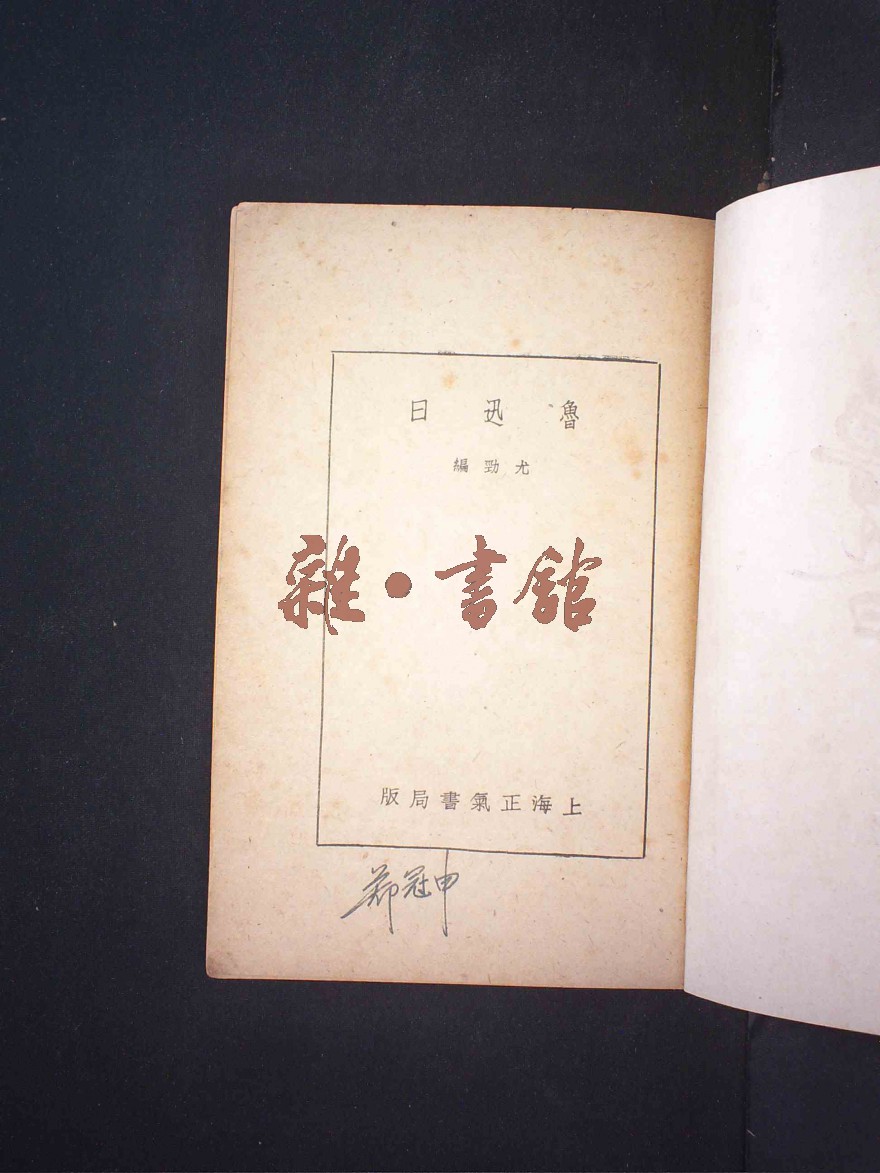 魯迅曰
尤勁編
雜·書館
上海正氣書局版
鄭冠申